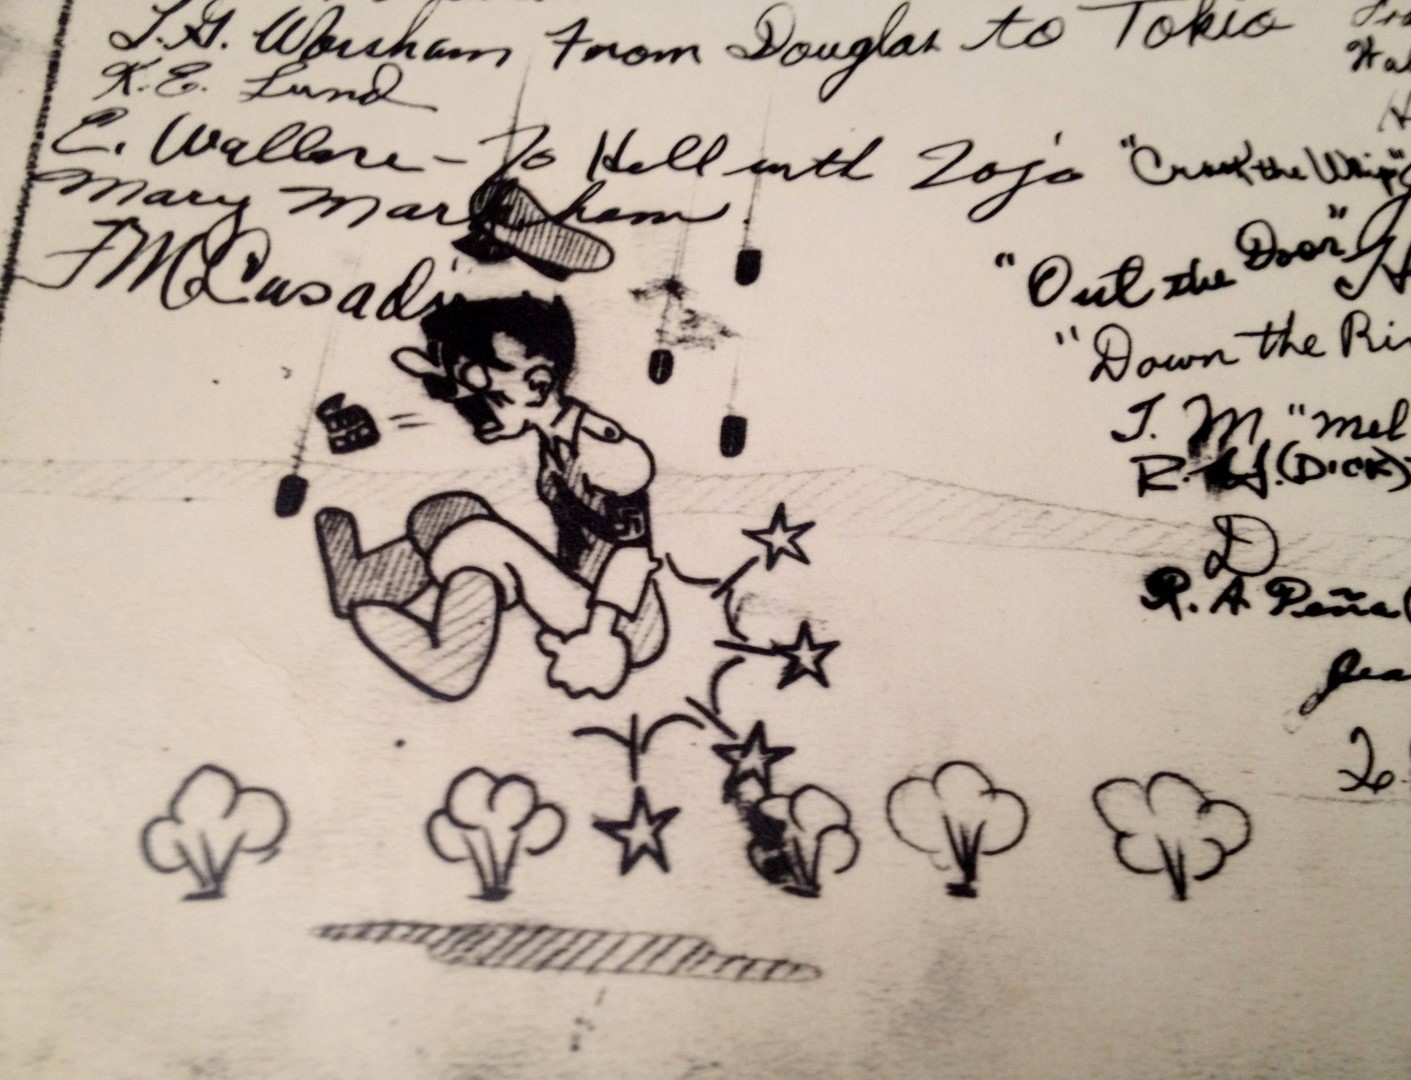 L.G. Worsham From Douglas to Tokio
K.E. Lund
E. Wallace - To Hell with Tojo
"Crack the Whip"
Mary Markham
"Out the Door"
FM Casadi
"Down the
J. M. "Mel
R. (DICK)
D
R. A Peña (